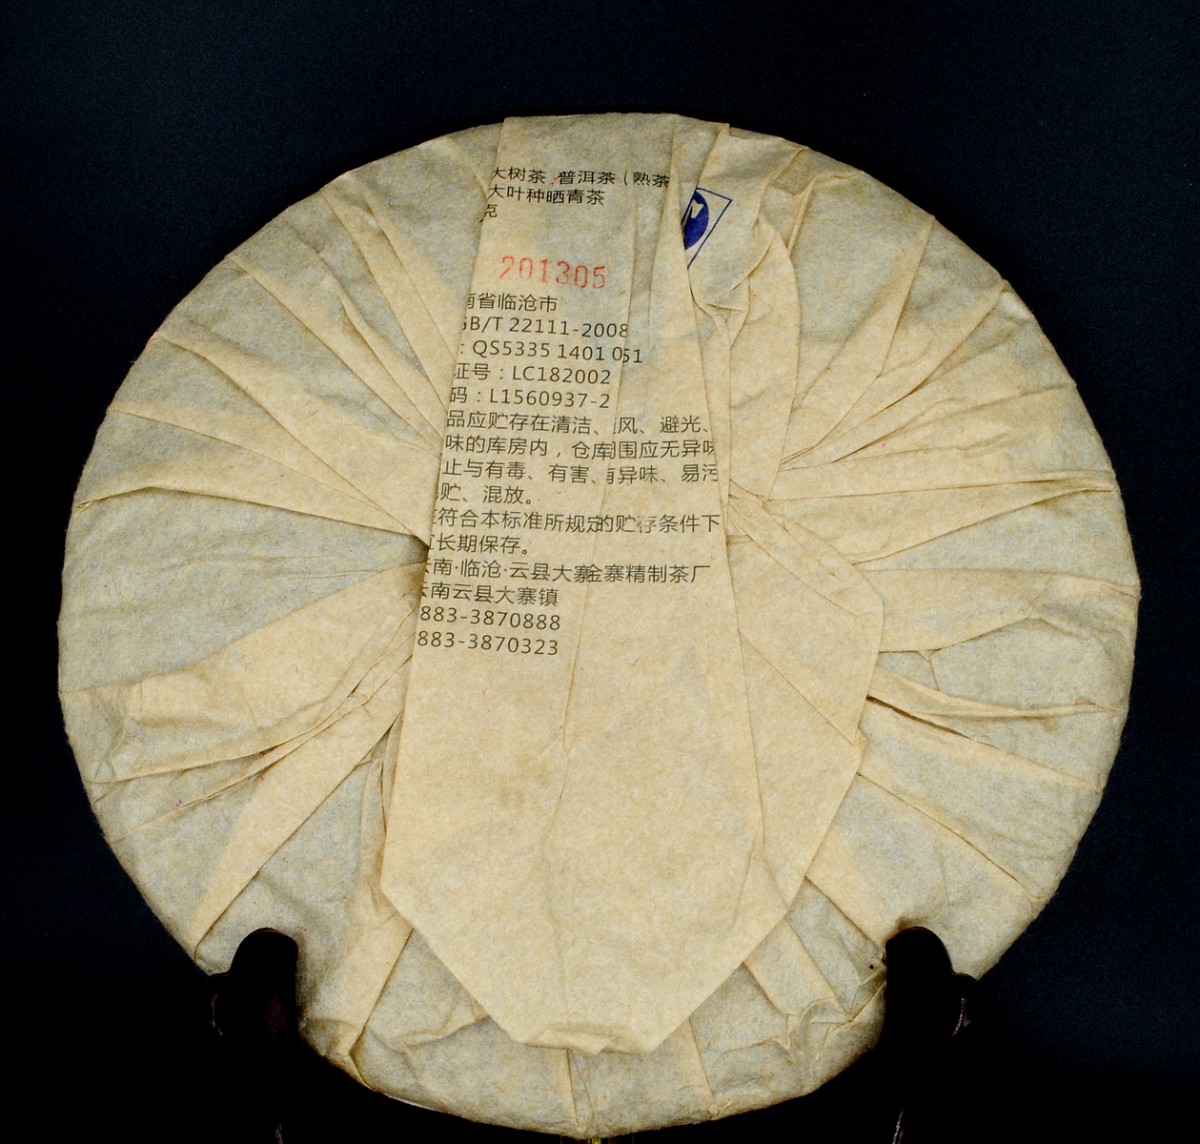 大树茶 普洱茶（熟茶
大叶种晒青茶
克
201305
南省临沧市
GB/T 22111-2008
: QS5335 1401 051
证号：LC182002
码：L1560937-2
品应贮存在清洁、风、避光、
味的库房内，仓库围应无异味
止与有毒、有害、有异味、易污
贮、混放。
符合本标准所规定的贮存条件下
长期保存。
云南·临沧·云县大寨金寨精制茶厂
云南云县大寨镇
883-3870888
883-3870323